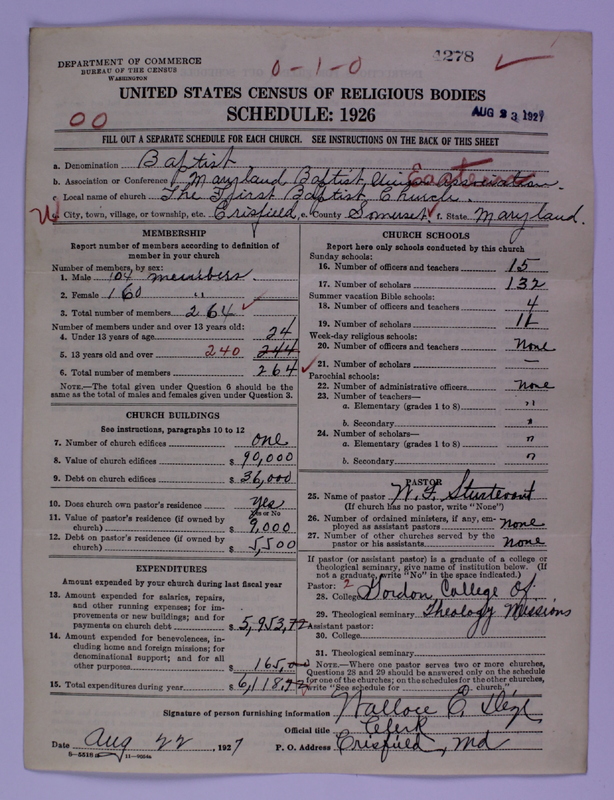 4278
DEPARTMENT OF COMMERCE
BUREAU OF THE CENSUS
WASHINGTON
0-1-0
UNITED STATES CENSUS OF RELIGIOUS BODIES
SCHEDULE: 1926
AUG 23 1927
00
FILL OUT A SEPARATE SCHEDULE FOR EACH CHURCH. SEE INSTRUCTIONS ON THE BACK OF THIS SHEET
a. Denomination Baptist
b. Association or Conference Maryland Baptist Union Association. Eastern
c. Local name of church The First Baptist Church.
d. City, town, village, or township, etc. Crisfield, e. County Somerset, f. State Maryland.
MEMBERSHIP
Report number of members according to definition of member in your church
Number of members, by sex:
1. Male 104 members.
2. Female 160 "
3. Total number of members 264
Number of members under and over 13 years old:
4. Under 13 years of age 24
5. 13 years old and over 240 244
6. Total number of members 264
NOTE.—The total given under Question 6 should be the same as the total of males and females given under Question 3.
CHURCH BUILDINGS
See instructions, paragraphs 10 to 12
7. Number of church edifices one
8. Value of church edifices $ 90,000
9. Debt on church edifices $ 36,000
10. Does church own pastor's residence? Yes
Yes or No
11. Value of pastor's residence (if owned by church) $ 9,000
12. Debt on pastor's residence (if owned by church) $ 5,500
EXPENDITURES
Amount expended by your church during last fiscal year
13. Amount expended for salaries, repairs, and other running expenses; for improvements or new buildings; and for payments on church debt $ 5,953.92
14. Amount expended for benevolences, including home and foreign missions; for denominational support; and for all other purposes $ 165.00
15. Total expenditures during year $ 6,118.92
CHURCH SCHOOLS
Report here only schools conducted by this church
Sunday schools:
16. Number of officers and teachers 15
17. Number of scholars 132
Summer vacation Bible schools:
18. Number of officers and teachers 4
19. Number of scholars
Week-day religious schools:
20. Number of officers and teachers None
21. Number of scholars —
Parochial schools:
22. Number of administrative officers None
23. Number of teachers—
a. Elementary (grades 1 to 8) "
b. Secondary "
24. Number of scholars—
a. Elementary (grades 1 to 8) "
b. Secondary "
PASTOR
25. Name of pastor W. F. Sturtevant
(If church has no pastor, write "None")
26. Number of ordained ministers, if any, employed as assistant pastors none
27. Number of other churches served by the pastor or his assistants None
If pastor (or assistant pastor) is a graduate of a college or theological seminary, give name of institution below. (If not a graduate, write "No" in the space indicated.)
Pastor: 2
28. College Gordon College Of
29. Theological seminary Theology Missions
Assistant pastor:
30. College
31. Theological seminary
NOTE.—Where one pastor serves two or more churches, Questions 28 and 29 should be answered only on the schedule for one of the churches; on the schedules for the other churches, write "See schedule for church."
Signature of person furnishing information Wallace E.
Official title Clerk
Date Aug 22, 1927 P. O. Address Crisfield, Md